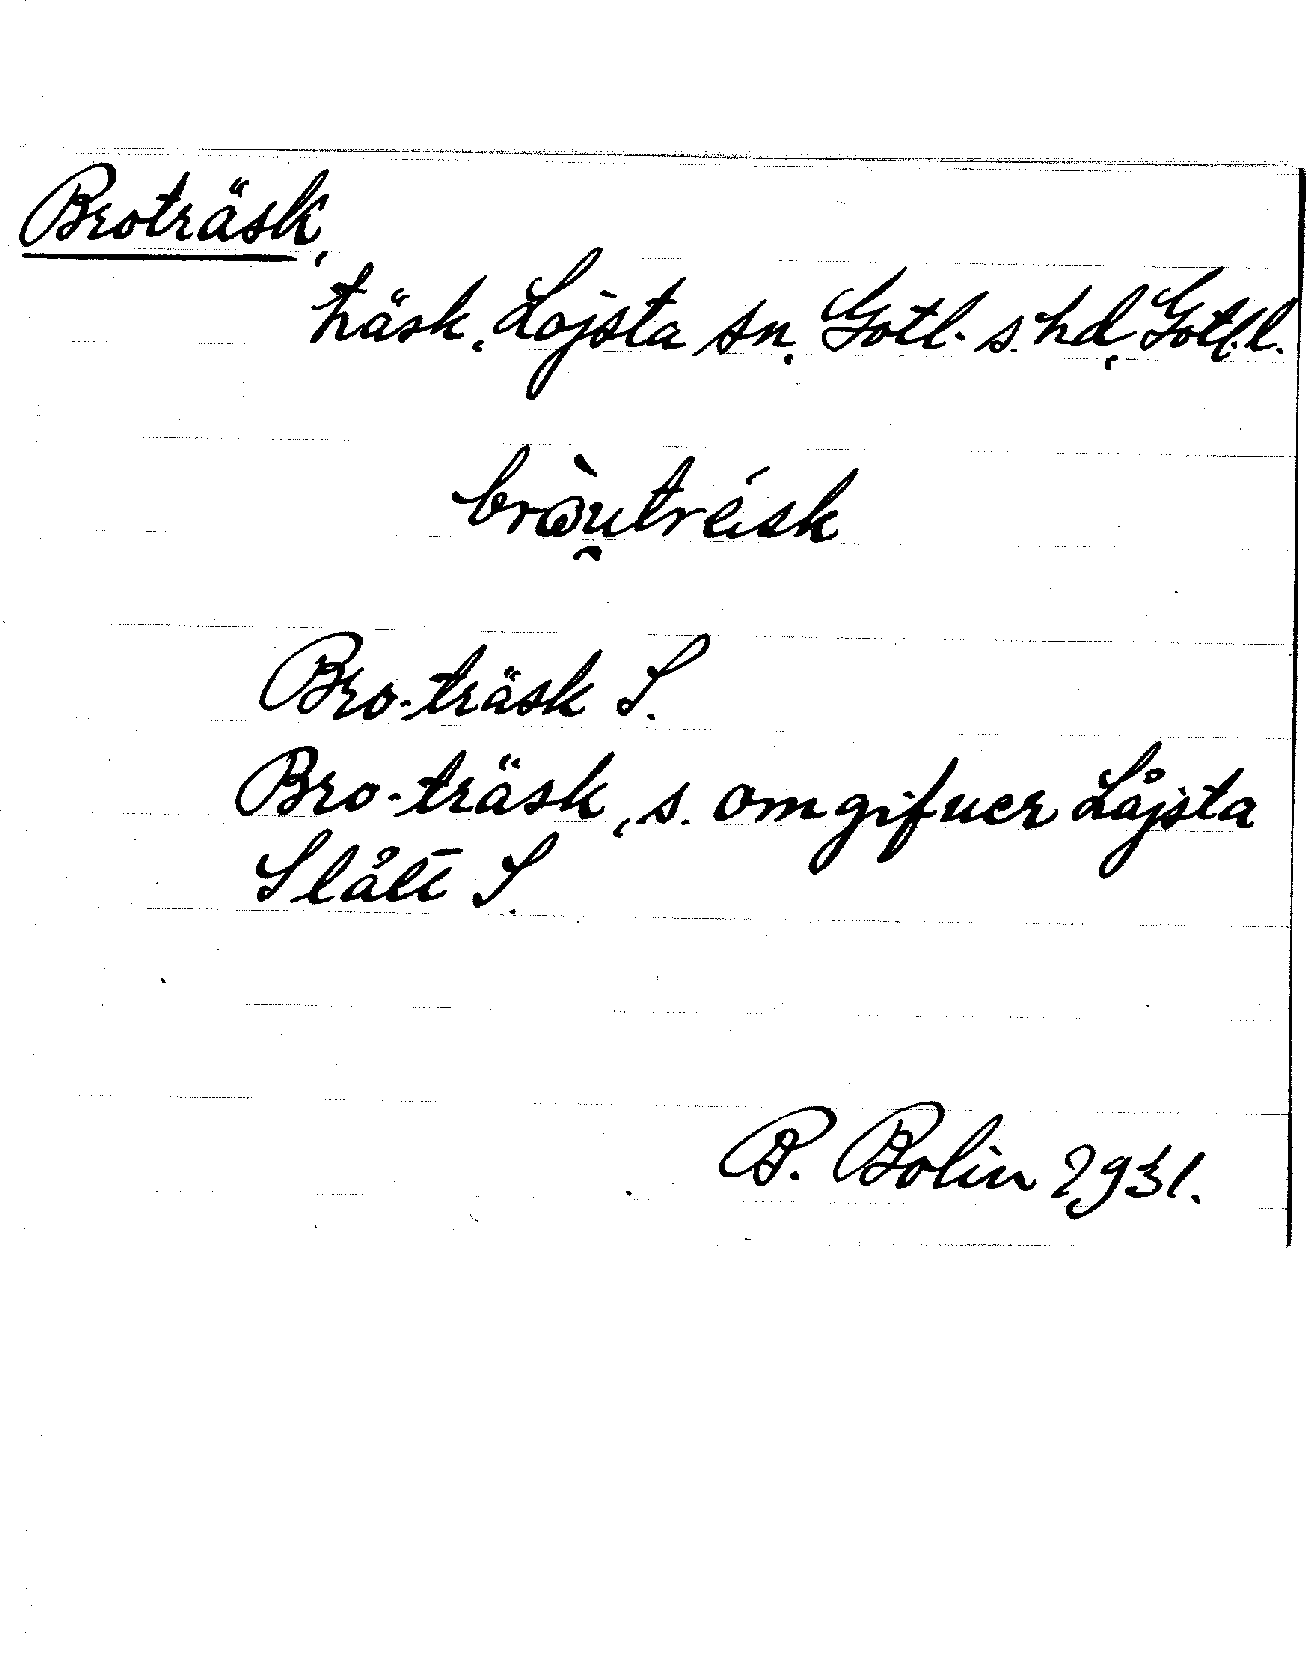 Broträsk,
träsk, Lojsta sn, Gotl. s. hd, Gotl. l.
Bro-träsk S.
Bro-träsk, s. omgifver Låjsta
Slått S.
B. Bolin 1931.